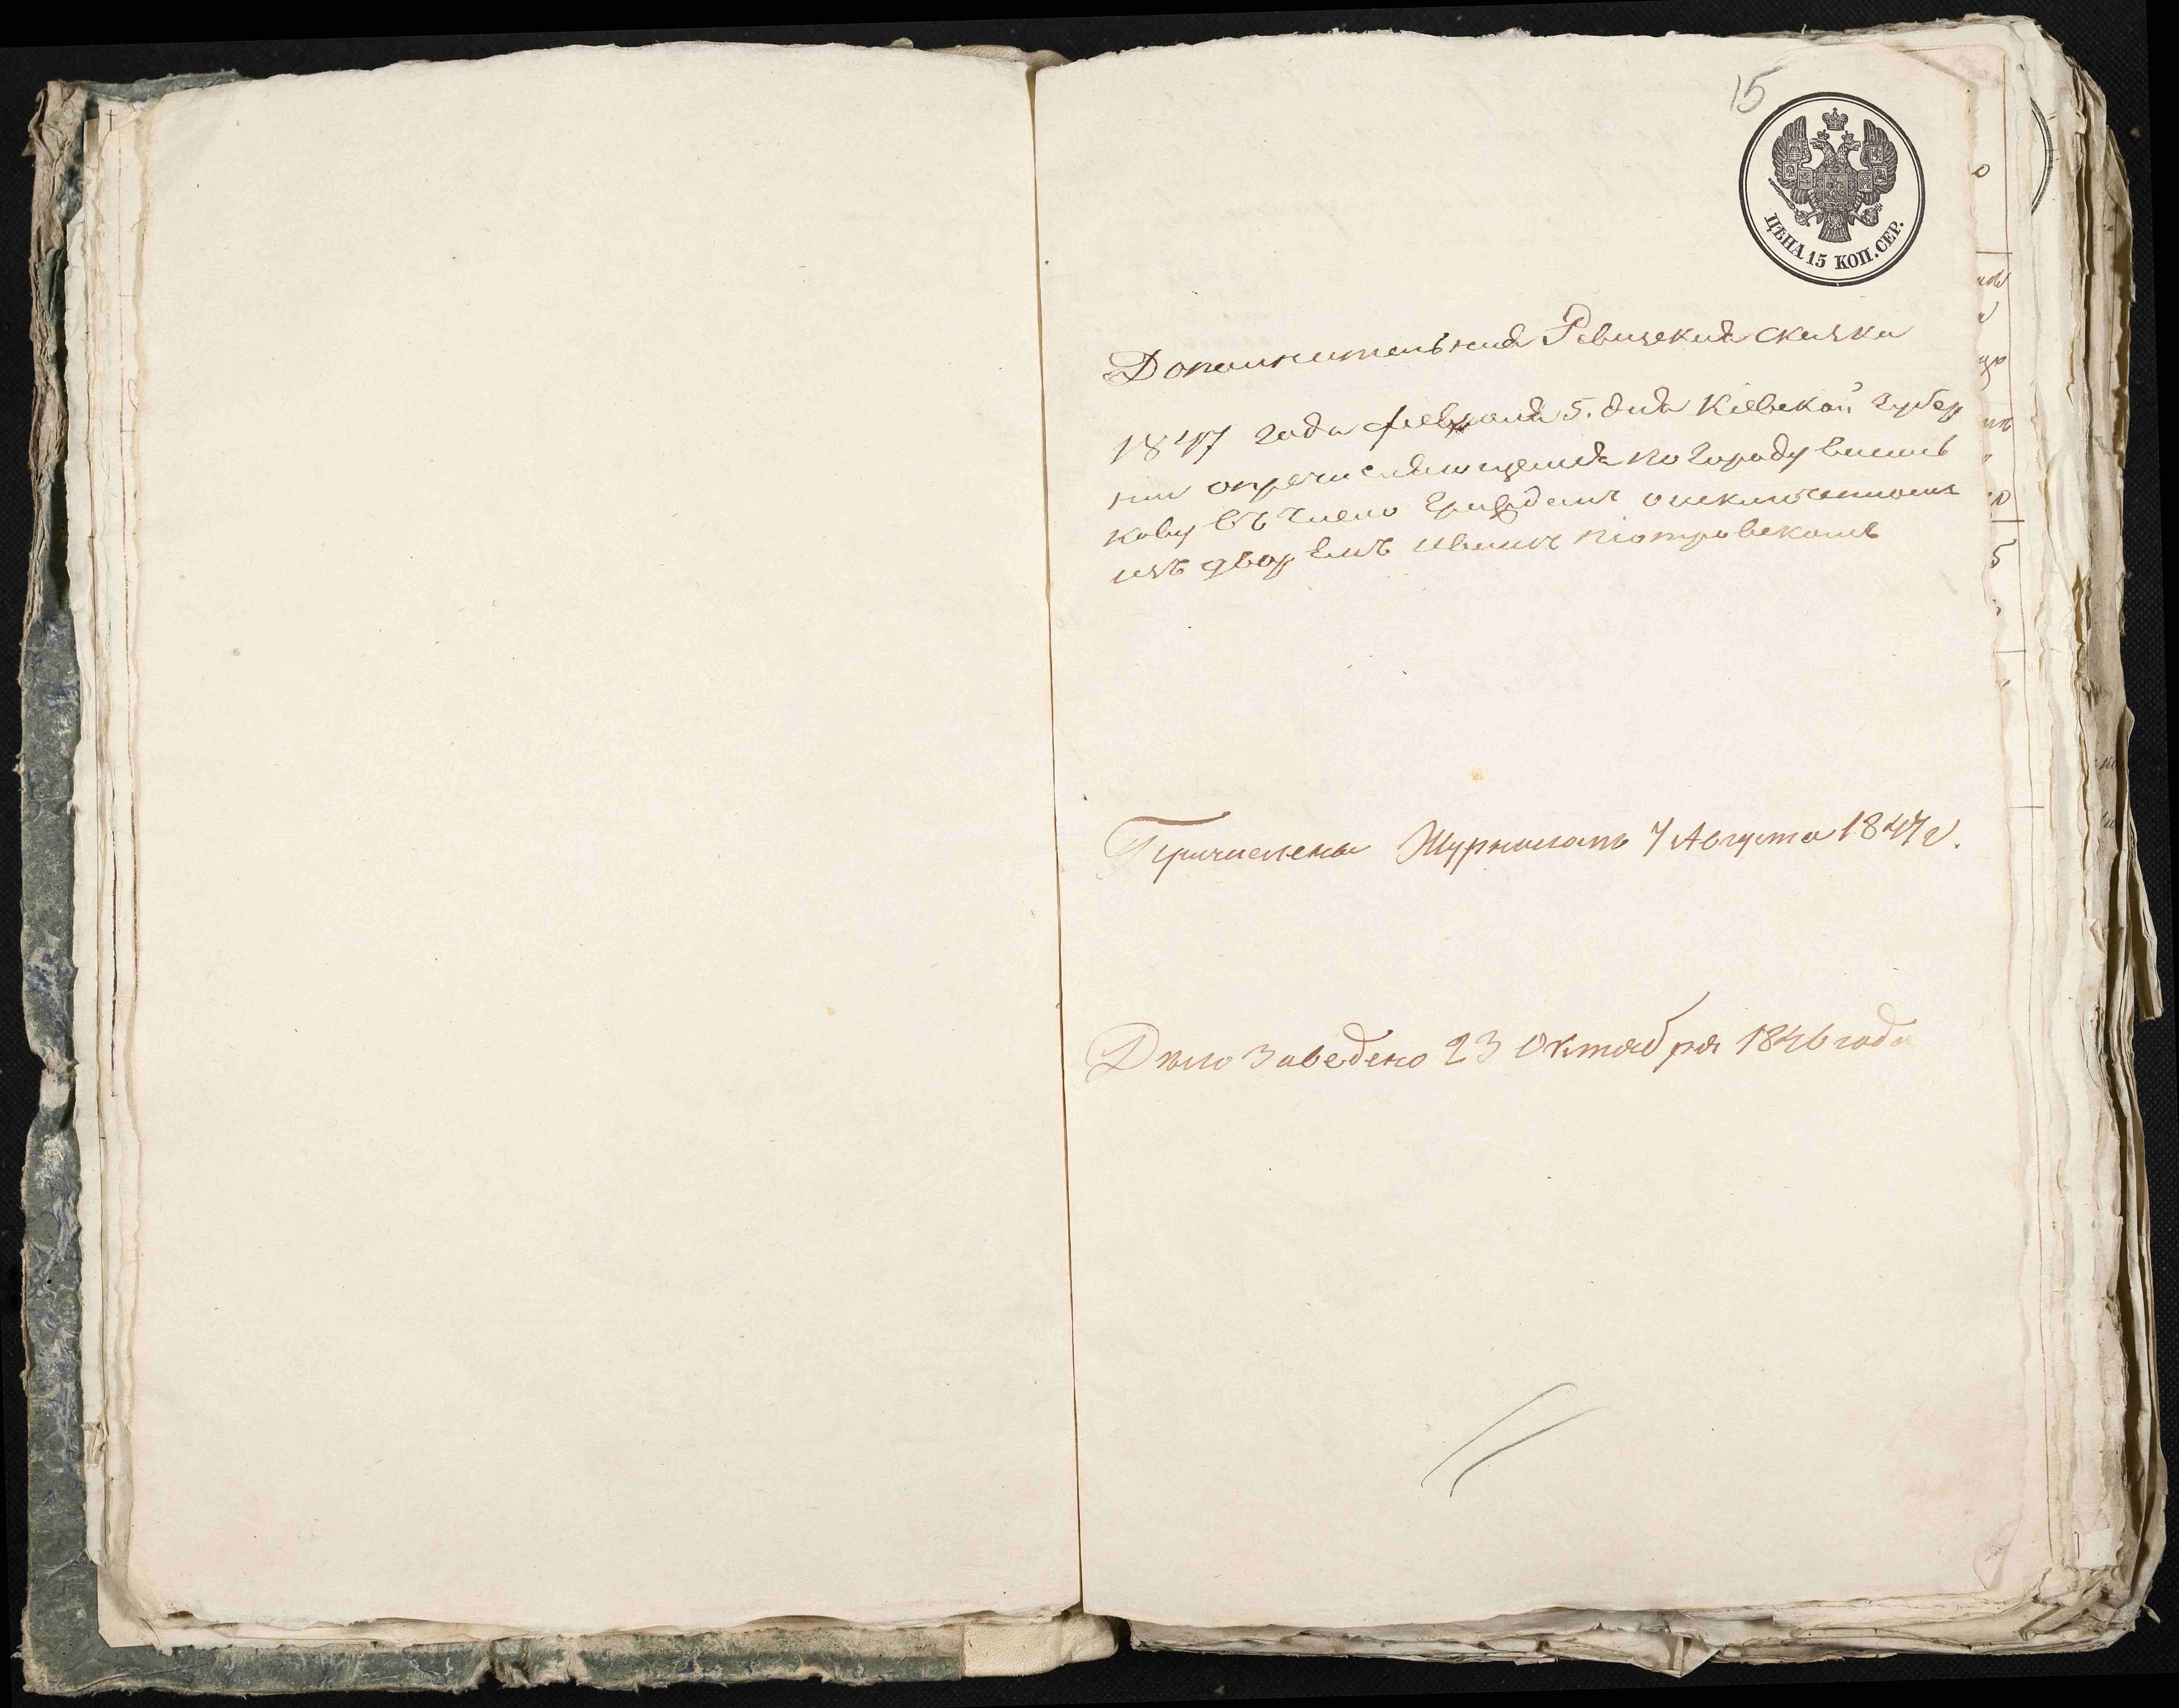 15
ЦѢНА 15 КОП. СЕР.
Дополнительная Ревизская сказка
1847 года февраля 5. дня Кіевской губер
нии о причисляющемся по городу Василь
кову въ число граждан о исключенном
изъ дворянъ Иване Піотровскомъ
Причислены Журналомъ 7 Августа 1847 г.
Дѣло заведено 23 Октября 1846 года